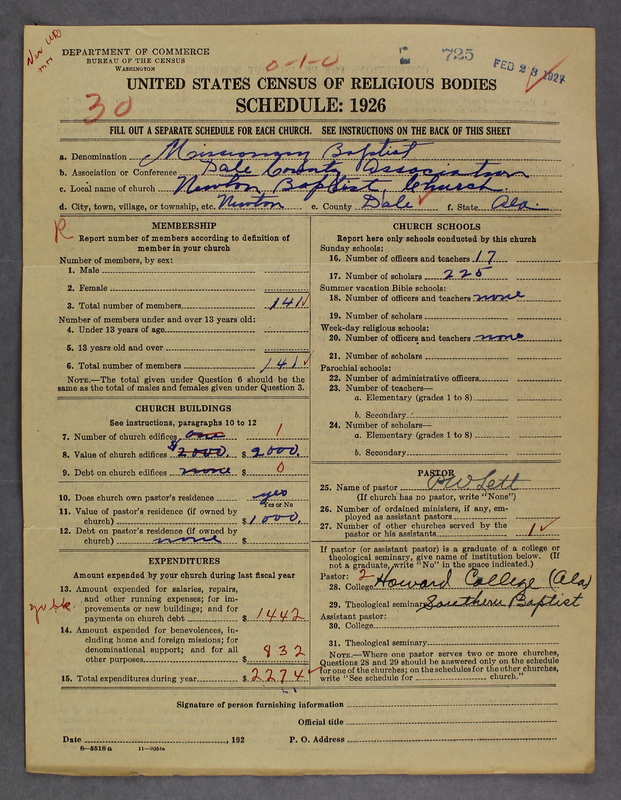 DEPARTMENT OF COMMERCE
BUREAU OF THE CENSUS
WASHINGTON
0-1-0
725
FEB 23 1927
30
UNITED STATES CENSUS OF RELIGIOUS BODIES
SCHEDULE: 1926
FILL OUT A SEPARATE SCHEDULE FOR EACH CHURCH. SEE INSTRUCTIONS ON THE BACK OF THIS SHEET
a. Denomination Missionary Baptist
b. Association or Conference Dale County Association
c. Local name of church Newton Baptist Church.
d. City, town, village, or township, etc. Newton e. County Dale f. State Ala.
R
MEMBERSHIP
Report number of members according to definition of
member in your church
Number of members, by sex:
1. Male
2. Female
3. Total number of members 141
Number of members under and over 13 years old:
4. Under 13 years of age
5. 13 years old and over
6. Total number of members 141
NOTE.—The total given under Question 6 should be the
same as the total of males and females given under Question 3.
CHURCH BUILDINGS
See instructions, paragraphs 10 to 12
7. Number of church edifices one 1
8. Value of church edifices $2000. $ 2000.
9. Debt on church edifices none $ 0
10. Does church own pastor's residence yes
Yes or No
11. Value of pastor's residence (if owned by
church) $ 1000.
12. Debt on pastor's residence (if owned by
church) none $
EXPENDITURES
Amount expended by your church during last fiscal year
13. Amount expended for salaries, repairs,
and other running expenses; for im-
provements or new buildings; and for
payments on church debt $ 1442
yr bk.
14. Amount expended for benevolences, in-
cluding home and foreign missions; for
denominational support; and for all
other purposes 832
15. Total expenditures during year $ 2274
CHURCH SCHOOLS
Report here only schools conducted by this church
Sunday schools:
16. Number of officers and teachers 17
17. Number of scholars 225
Summer vacation Bible schools:
18. Number of officers and teachers none
19. Number of scholars
Week-day religious schools:
20. Number of officers and teachers none
21. Number of scholars
Parochial schools:
22. Number of administrative officers
23. Number of teachers—
a. Elementary (grades 1 to 8)
b. Secondary
24. Number of scholars—
a. Elementary (grades 1 to 8)
b. Secondary
PASTOR
25. Name of pastor Lett
(If church has no pastor, write "None")
26. Number of ordained ministers, if any, em-
ployed as assistant pastors
27. Number of other churches served by the
pastor or his assistants 1
If pastor (or assistant pastor) is a graduate of a college or
theological seminary, give name of institution below. (If
not a graduate, write "No" in the space indicated.)
Pastor: 2
28. College Howard College (Ala)
29. Theological seminary Southern Baptist
Assistant pastor:
30. College
31. Theological seminary
NOTE.—Where one pastor serves two or more churches,
Questions 28 and 29 should be answered only on the schedule
for one of the churches; on the schedules for the other churches,
write "See schedule for church."
Signature of person furnishing information
Official title
Date , 192 P. O. Address
8-5518a 11-9054a